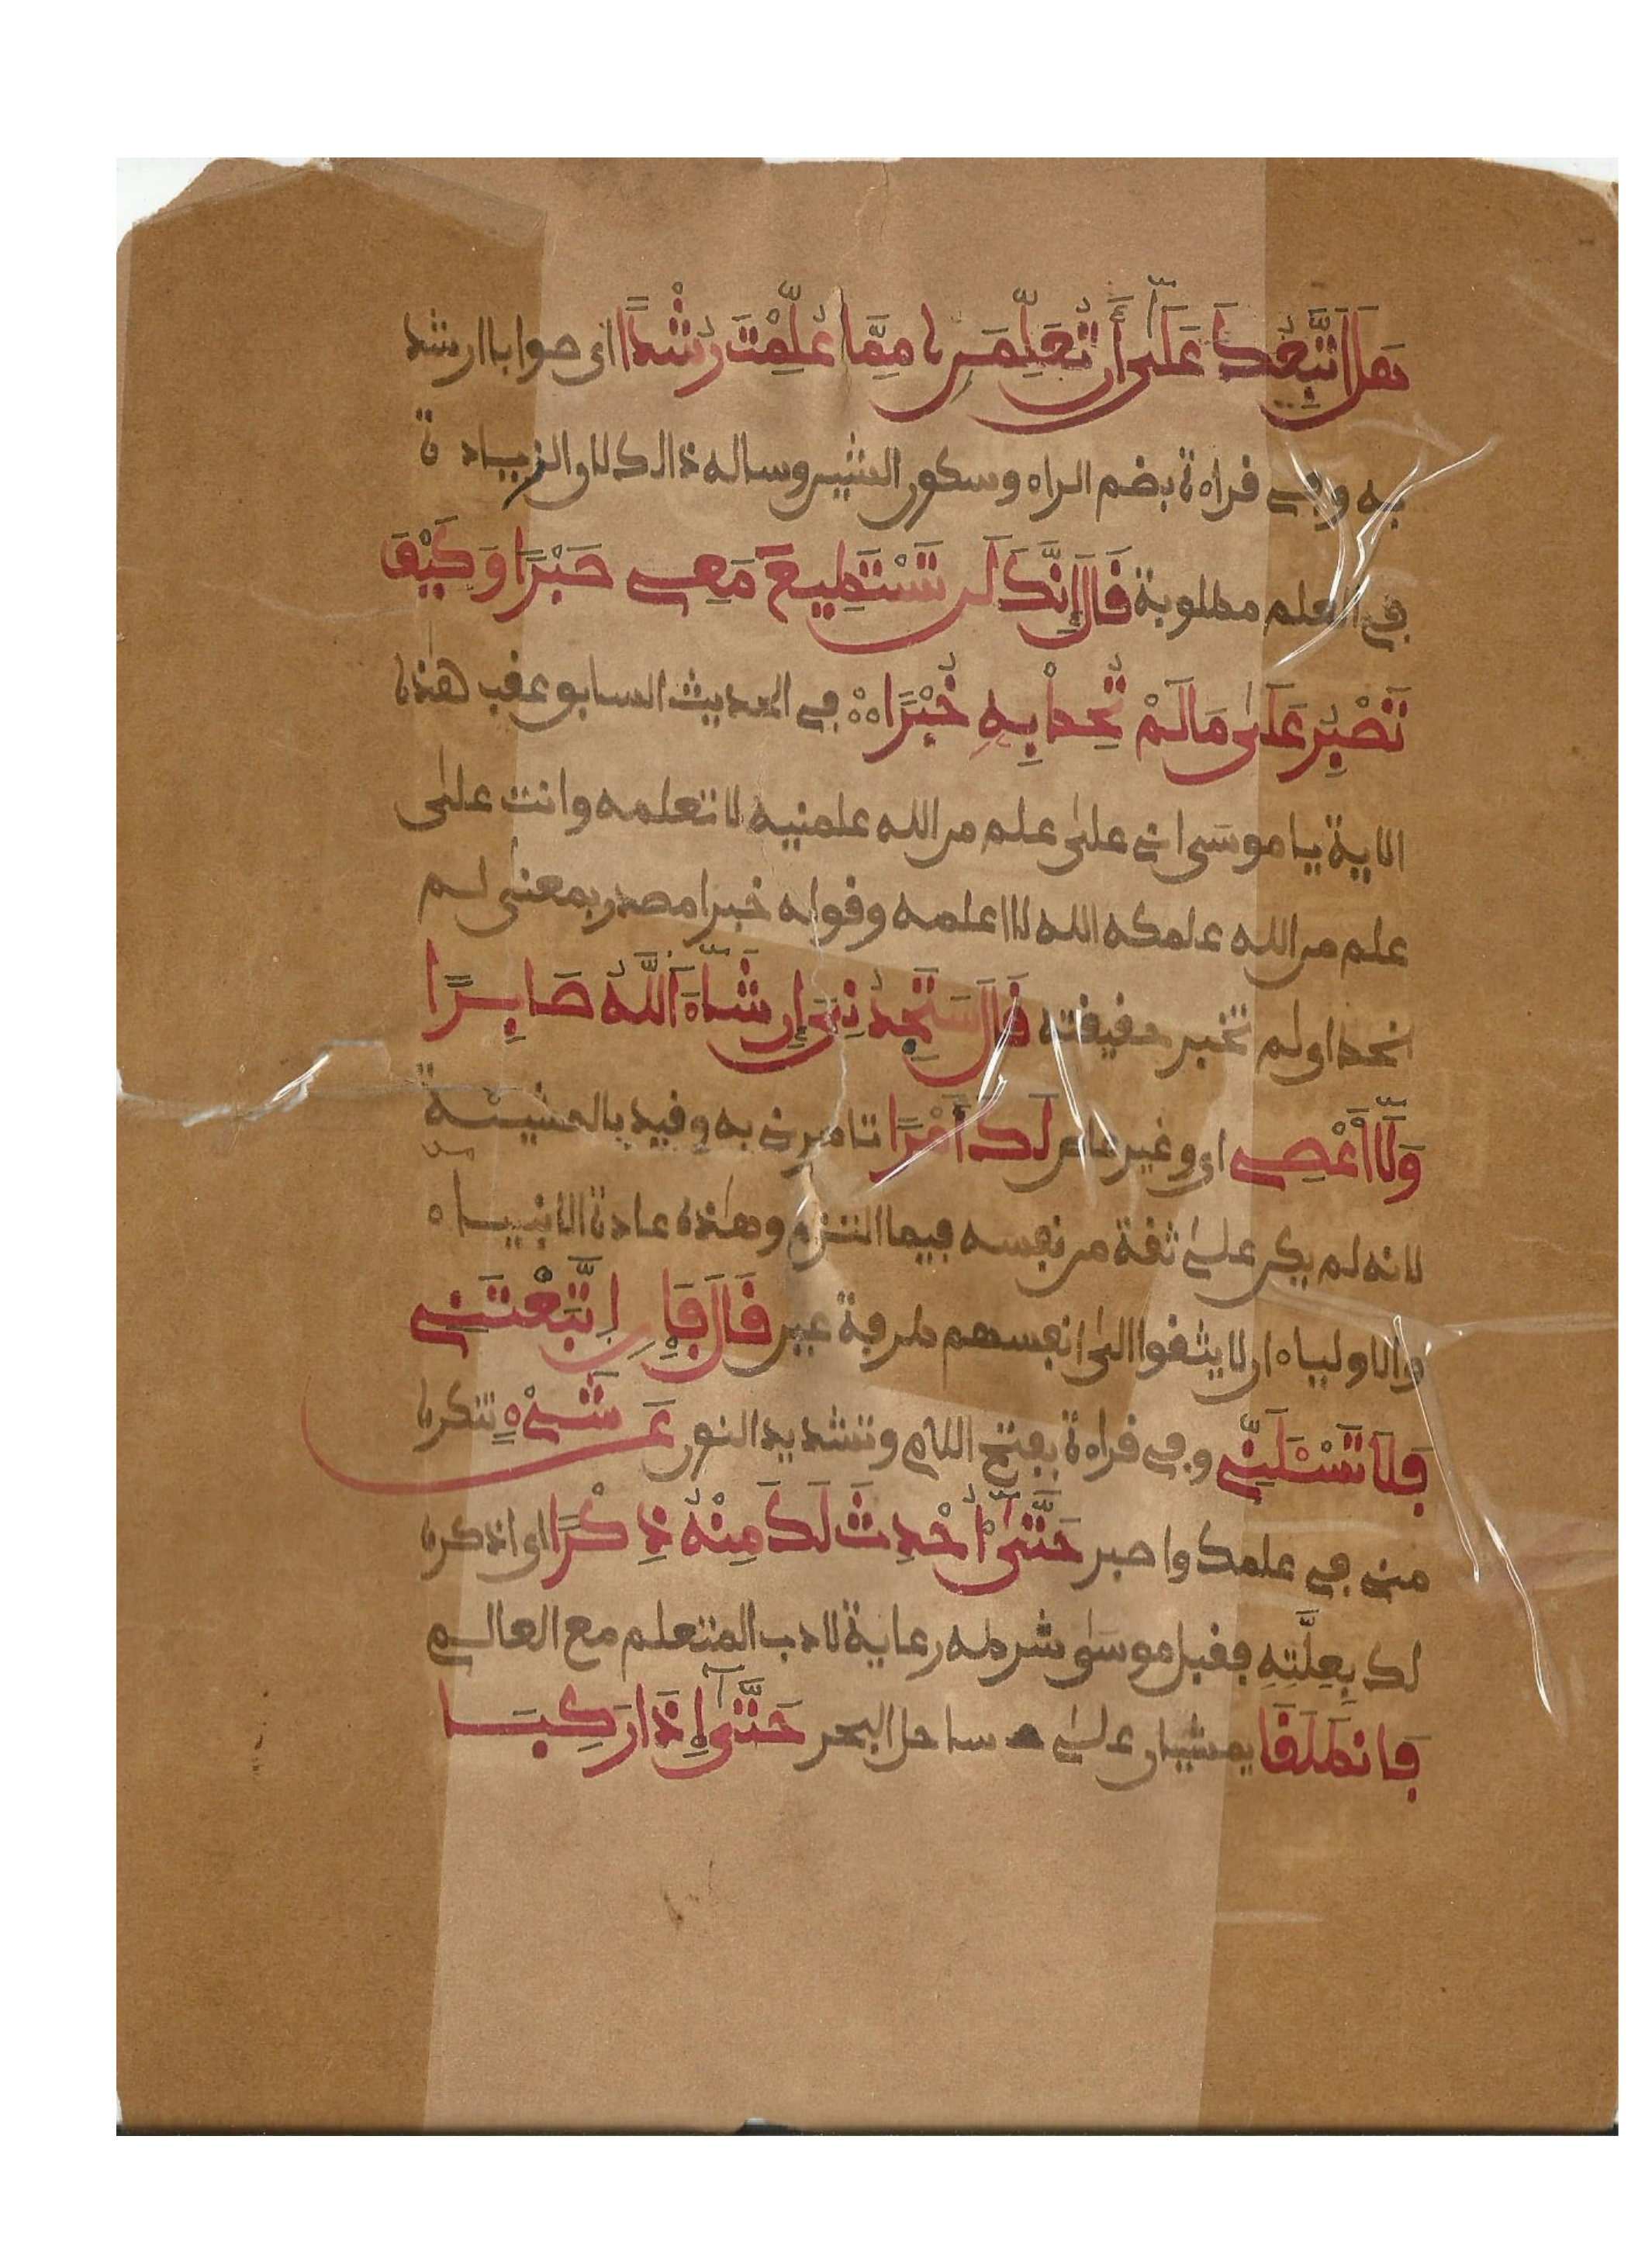 هَلَ اَتَّبِعُكَ عَلَىٰٓ أَن تُعَلِّمَنِۦ مِمَّا عُلِّمْتَ رُشْداً اى صوابا ارشد
به وفي قراءة بضم الراء وسكون الشين وساله ذالك لان الزيادة
في العلم مطلوبة قَالَ إِنَّكَ لَن تَسْتَطِيعَ مَعِي صَبْرًا وَكَيْفَ
تَصْبِرُ عَلَىٰ مَا لَمْ تُحِطْ بِهِ خُبْرًا في الحديث السابق عقب هٰذه
الاية يا موسَى اني علىٰ علم من الله علمنيه لا تعلمه وانت علىٰ
علم من الله علمكه الله لا اعلمه وقوله خبرا مصدر بمعنىٰ لم
تحط او لم تخبر حقيقته قَالَ سَتَجِدُنِيَ إِن شَآءَ اَللَّهُ صَابِرًا
وَلَآ أَعْصِي اي وغير عاص لَكَ أَمْرًا تامرني به وقيد بالمشيئة
لانه لم يكن علىٰ ثقة من نفسه فيما التزم وهٰذه عادة الانبياء
والاولياء ان لا يثقوا الىٰ انفسهم طرفة عين قَالَ فَإِنِ اِتَّبَعْتَنِي
فَلَا تَسْـَٔلَنِّي وفي قراءة بفتح اللام وتشديد النون عَن شَيْءٍ تنكره
مني في علمك واصبر حَتَّىٰٓ أُحْدِثَ لَكَ مِنْهُ ذِكْرًا اى اذكره
لك بِعِلَّتِهِ فقبل موسَىٰ شرطه رعاية لادب المتعلم مع العالم
فَانطَلَقَا يمشيان علىٰ ساحل البحر حَتَّىٰٓ إِذَا رَكِبَا